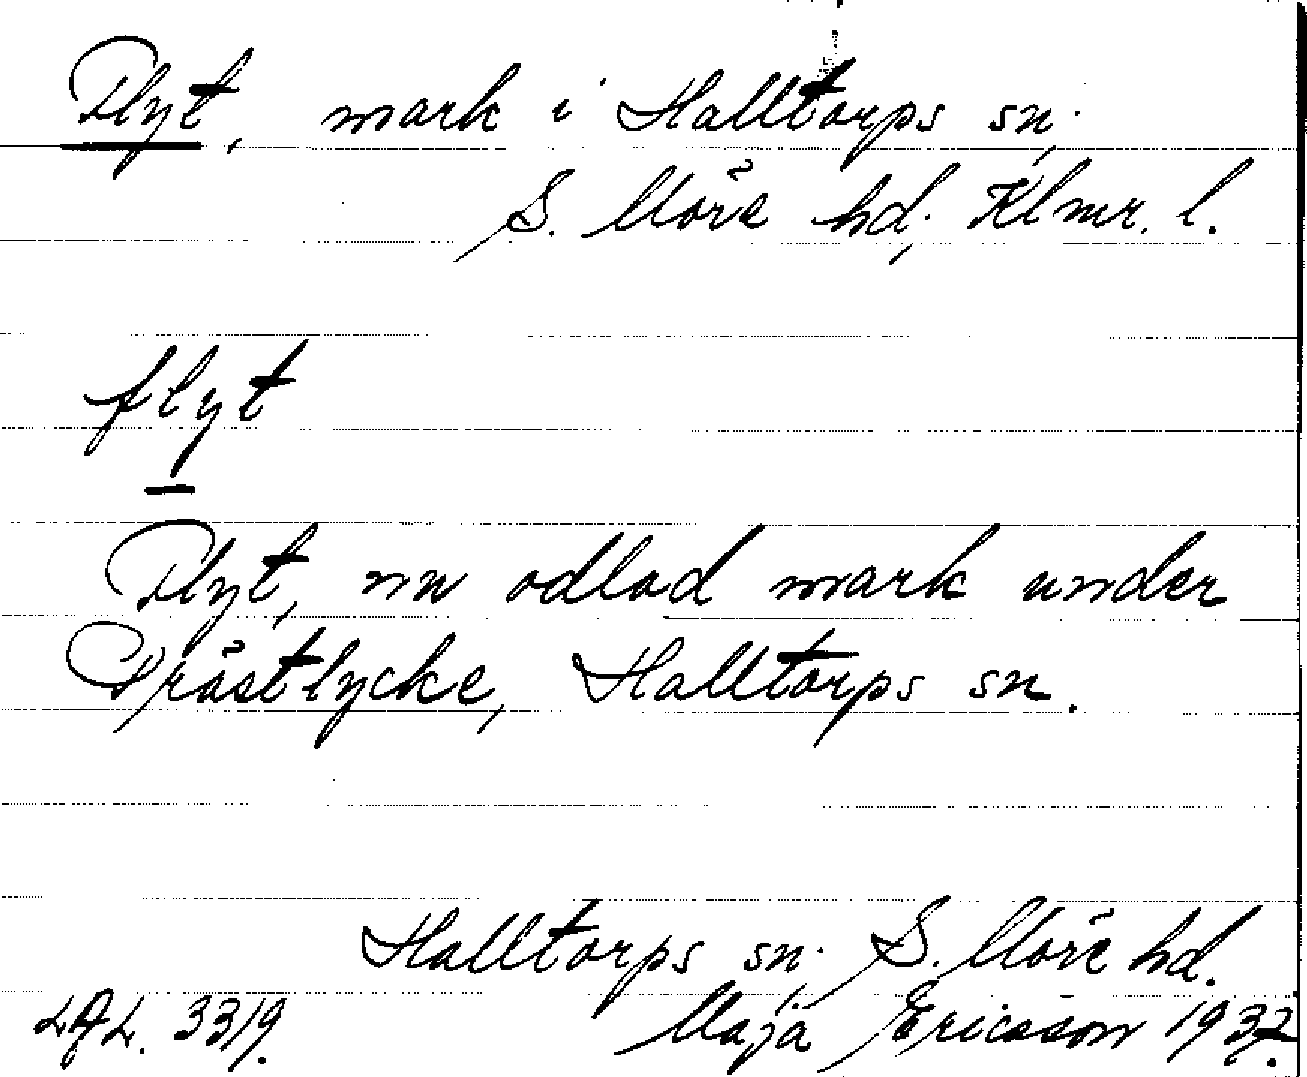 Flyt, mark i Halltorps sn;
S. Möre hd; Klmr. l.
flyt
Flyt, nu odlad mark under
Pråstlycke, Halltorps sn.
Halltorps sn; S. Möre hd.
LAL. 3319. Maja Ericsson 1937.